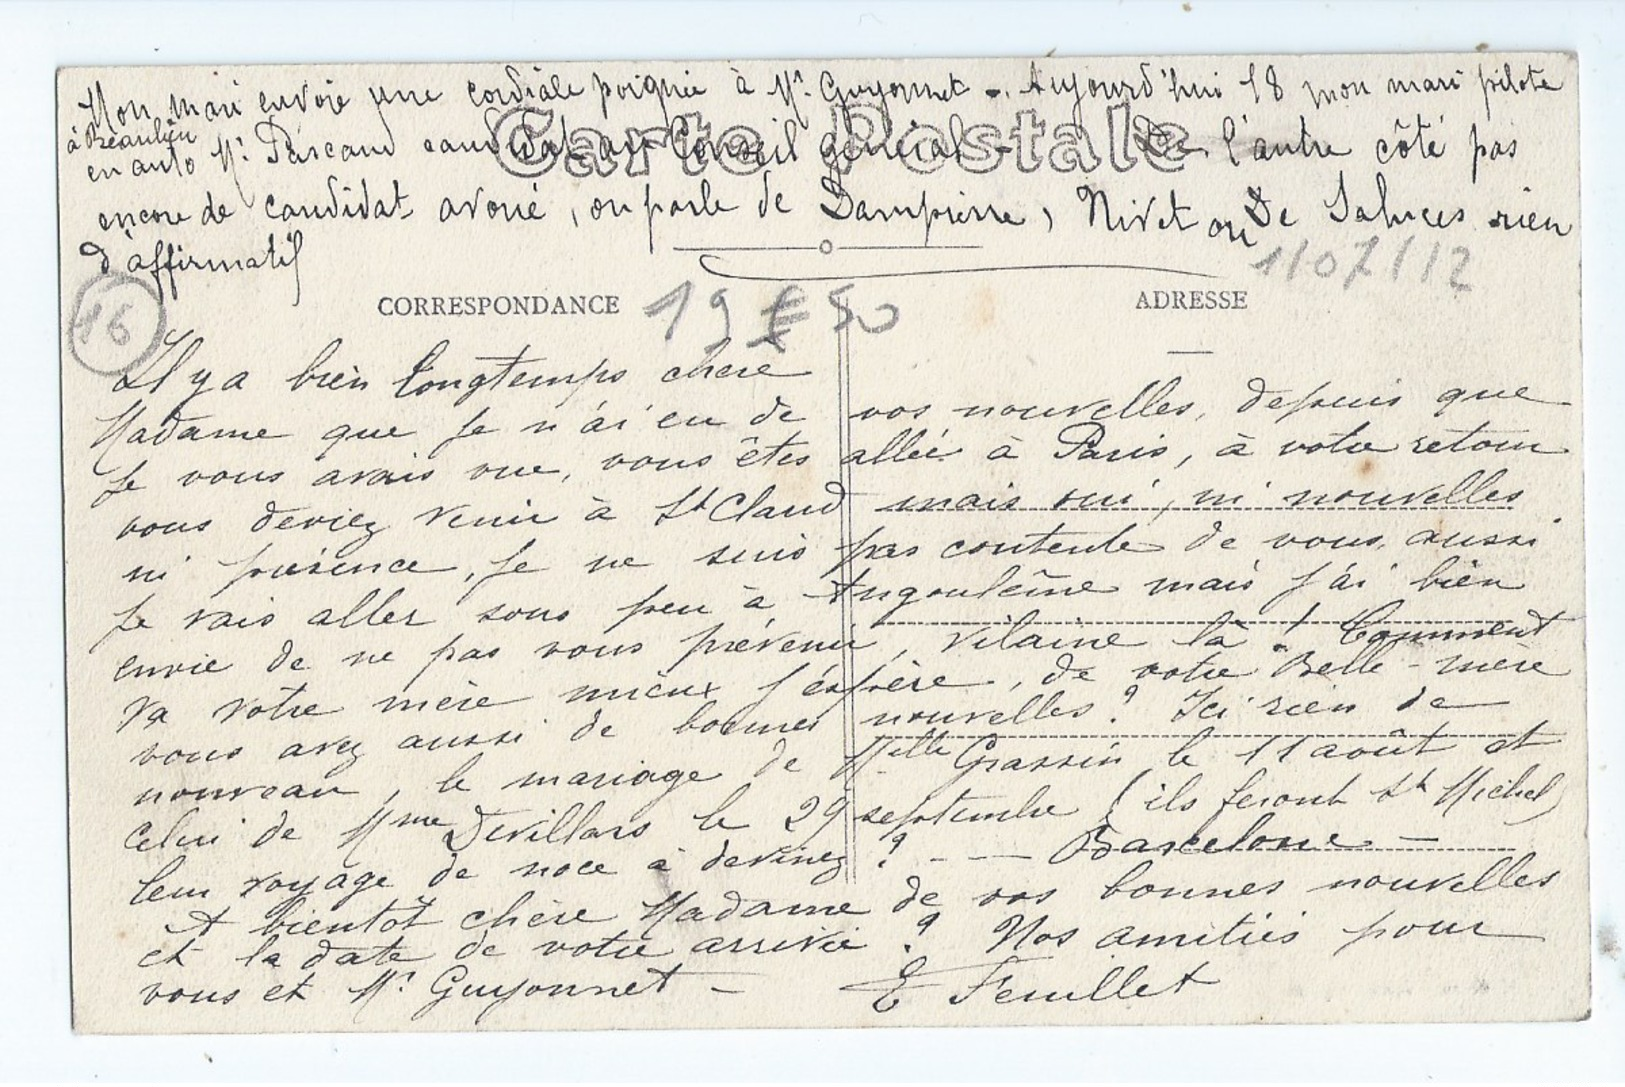 Mon mari envoie une cordiale poignée à Mr. Guyonnet -. Aujourd'hui 18 mon mari pilote
à Beaulieu
en auto Mr. Pascaud candidat au Conseil général - De l'autre côté pas
encore de candidat avoué, on parle de Dampierre, Nivet ou De Saluces rien
d'affirmatif
Carte Postale
1/07/12
16
CORRESPONDANCE
19 € 50
ADRESSE
Il y a bien longtemps chère
Madame que je n'ai eu de vos nouvelles, depuis que
je vous avais vue, vous êtes allée à Paris, à votre retour
vous deviez venir à St Claud mais oui, ni nouvelles
ni présence, je ne suis pas contente de vous, aussi
je vais aller sous peu à Angoulême mais j'ai bien
envie de ne pas vous prévenir, vilaine là ! Comment
va votre mère mieux j'espère, de votre Belle-mère
vous avez aussi de bonnes nouvelles ? Ici rien de
nouveau, le mariage de Melle Grassin le 11 août et
celui de Mme Devillars le 29 septembre (ils feront St Michel)
leur voyage de noce à devinez ? - — Barcelone —
A bientôt chère Madame de vos bonnes nouvelles
et la date de votre arrivée ? Nos amitiés pour
vous et Mr. Guyonnet - E Feuillet